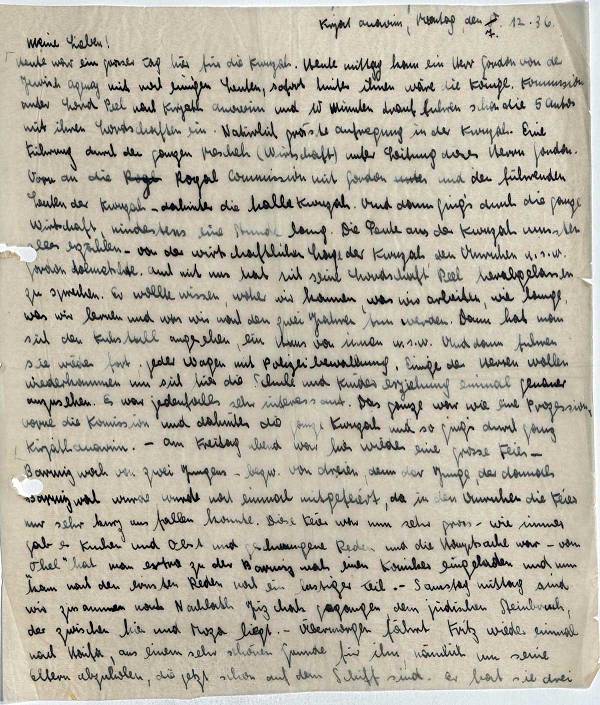 Kirjat anavim, Montag, den 7. 12. 36.
Meine Lieben!
Heute war ein grosser Tag hier für die Kwuzah. Heute mittag kam ein Herr Gordon von der
Jewish Agency mit noch einigen Leuten, sofort hinter ihnen wäre die Königl. Kommission
unter Lord Peel nach Kirjath anaweim und 10 Minuten drauf fuhren schon die 5 Autos
mit ihren Lordschaften ein. Natürlich grösste Aufregung in der Kwuzah. Eine
Führung durch den ganzen Meschek (Wirtschaft) unter Leitung dieses Herrn Gordon.
Vorn an die Royal Commission mit Gordon und den führenden
Leuten der Kwuzah - dahinter die halbe Kwuzah. Und dann gings durch die ganze
Wirtschaft, mindestens eine Stunde lang. Die Leute aus der Kwuzah mussten
alles erzählen - von der wirtschaftlichen Lage der Kwuzah den Unruhen u.s.w.
Gordon dolmetschte. Auch mit uns hat sich seine Lordschaft Peel herabgelassen
zu sprechen. Er wollte wissen, woher wir kommen, was wir arbeiten, wie lange,
was wir lernen und was wir nach den zwei Jahren tun werden. Dann hat man
sich den Kuhstall angesehen, ein Haus von innen u.s.w. Und dann fuhren
sie wieder fort. Jeder Wagen mit Polizeibewachung. Einige der Herren wollen
wiederkommen um sich hier die Schule und Kindererziehung einmal genauer
anzusehen. Es war jedenfalls sehr interessant. Das ganze war wie eine Prozession,
vorne die Komission und dahinter die ganze Kwuzah und so gings durch ganz
Kirjathanavim. - Am Freitag abend war hier wieder eine grosse Feier -
Barmizwoh von zwei Jungens - bezw. von dreien, denn der Junge, der damals
Barmizwoh wurde wurde noch einmal mitgefeiert, da in den Unruhen die Feier
nur sehr kurz aus fallen konnte. Diese Feier war nun sehr gross - wie immer
gab es Kuchen und Obst und geschwungene Reden und die Hauptsache war - vom
"Ohel" hat man extra zu der Barmizwoh einen Komiker eingeladen und nun
kam nach den ernsten Reden noch ein lustiger Teil. - Samstag mittag sind
wir zusammen nach Nachlath Jizchak gegangen dem jüdischen Steinbruch,
der zwischen hier und Moza liegt. - Übermorgen fährt Fritz wieder einmal
nach Haifa aus einem sehr schönen Grunde für ihn nämlich um seine
Eltern abzuholen, die jetzt schon auf dem Schiff sind. Er hat sie drei